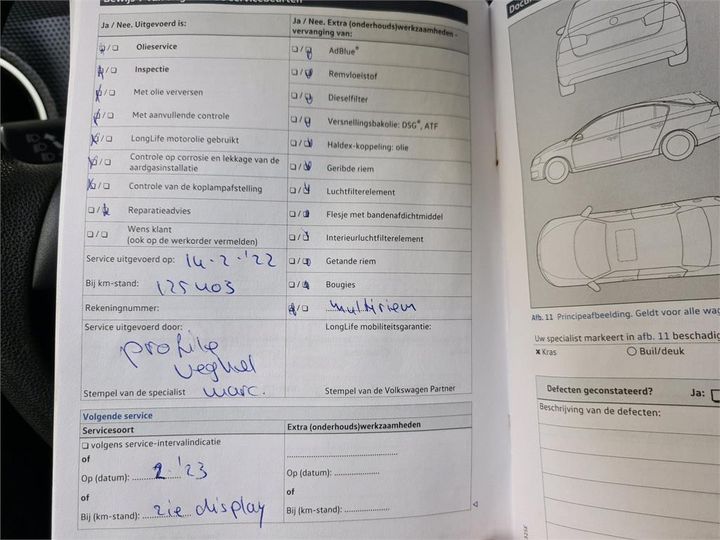 Ja / Nee. Uitgevoerd is:
Olieservice
Inspectie
Met olie verversen
Met aanvullende controle
LongLife motorolie gebruikt
Controle op corrosie en lekkage van de
aardgasinstallatie
Controle van de koplampafstelling
Reparatieadvies
Wens klant
(ook op de werkorder vermelden)
Service uitgevoerd op: 14-2-'22
Bij km-stand: 125403
Rekeningnummer:
Service uitgevoerd door:
profile
veghel
Stempel van de specialist marc.
Ja / Nee. Extra (onderhouds)werkzaamheden -
vervanging van:
AdBlue®
Remvloeistof
Dieselfilter
Versnellingsbakolie: DSG®, ATF
Haldex-koppeling: olie
Geribde riem
Luchtfilterelement
Flesje met bandenafdichtmiddel
Interieurluchtfilterelement
Getande riem
Bougies
multiriem
LongLife mobiliteitsgarantie:
Stempel van de Volkswagen Partner
Volgende service
Servicesoort
volgens service-intervalindicatie
of
Op (datum): 2-'23
of
Bij (km-stand): zie display
Extra (onderhouds)werkzaamheden
of
Op (datum):
of
Bij (km-stand):
Afb. 11 Principeafbeelding. Geldt voor alle wag
Uw specialist markeert in afb. 11 beschadig
x Kras
Buil/deuk
Defecten geconstateerd? Ja:
Beschrijving van de defecten: